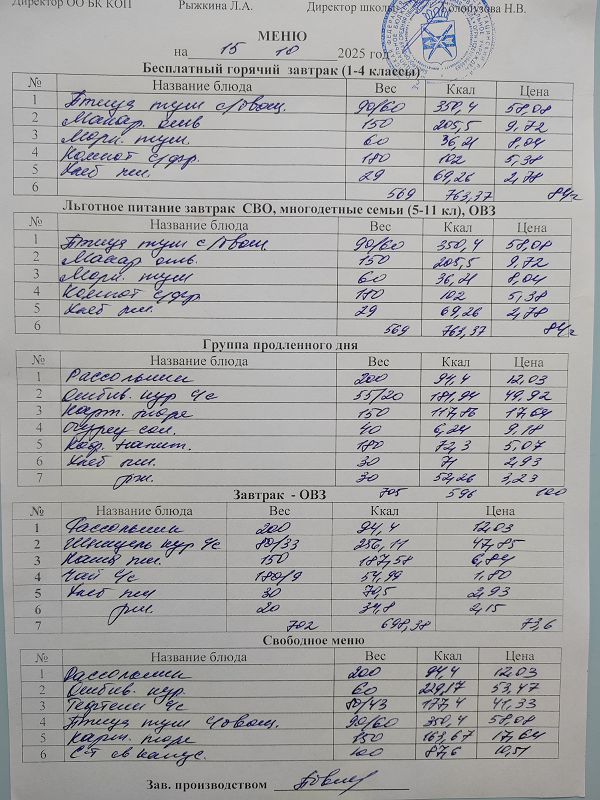 Директор ОО БК КОП Рыжкина Л.А. Директор школы Колопузова Н.В.
МЕНЮ
на 15 10 2025 год
Бесплатный горячий завтрак (1-4 классы)
№ Название блюда Вес Ккал Цена
1 Птица туш с/овощ. 90/60 350,4 58,08
2 Макар. отв 150 205,5 9,72
3 Морк. туш. 60 36,21 8,04
4 Компот с/фр. 180 102 5,38
5 Хлеб пш. 29 69,26 2,78
6 569 763,37 84
Льготное питание завтрак СВО, многодетные семьи (5-11 кл), ОВЗ
№ Название блюда Вес Ккал Цена
1 Птица туш с/овощ 90/60 350,4 58,08
2 Макар отв. 150 205,5 9,72
3 Морк. туш 60 36,21 8,04
4 Компот с/фр 180 102 5,38
5 Хлеб пш. 29 69,26 2,78
6 569 763,37 84
Группа продленного дня
№ Название блюда Вес Ккал Цена
1 Рассольник 200 94,4 12,03
2 Отбив. кур с/с 55/20 181,94 49,92
3 Карт. пюре 150 117,86 17,64
4 Огурец сол. 40 6,24 9,18
5 Коф. напит. 180 72,3 5,07
6 Хлеб пш. 30 71 2,93
7 рж. 30 52,26 3,23
Завтрак - ОВЗ 705 596 100
№ Название блюда Вес Ккал Цена
1 Рассольник 200 94,4 12,03
2 Шницель кур с/с 80/33 256,11 47,85
3 Каша пш. 150 187,58 6,84
4 Чай с/с 180/9 54,99 1,80
5 Хлеб пш 30 70,5 2,93
6 рж. 20 34,8 2,15
7 702 698,38 73,6
Свободное меню
№ Название блюда Вес Ккал Цена
1 Рассольник 200 94,4 12,03
2 Отбив. кур. 60 229,17 53,47
3 Тефтели с/с 80/43 177,4 41,33
4 Птица туш с/овощ. 90/60 350,4 58,08
5 Карт. пюре 150 163,67 17,64
6 С-т св капус. 100 87,6 10,51
Зав. производством